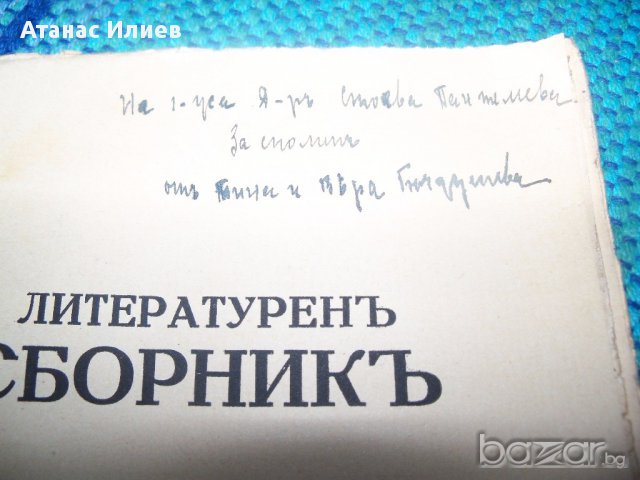 Атанас Илиев
На г-ца Д-ръ Стоева Пантелеева
За споминъ
отъ и Вѣра
ЛИТЕРАТУРЕНЪ
СБОРНИКЪ
bazar.bg